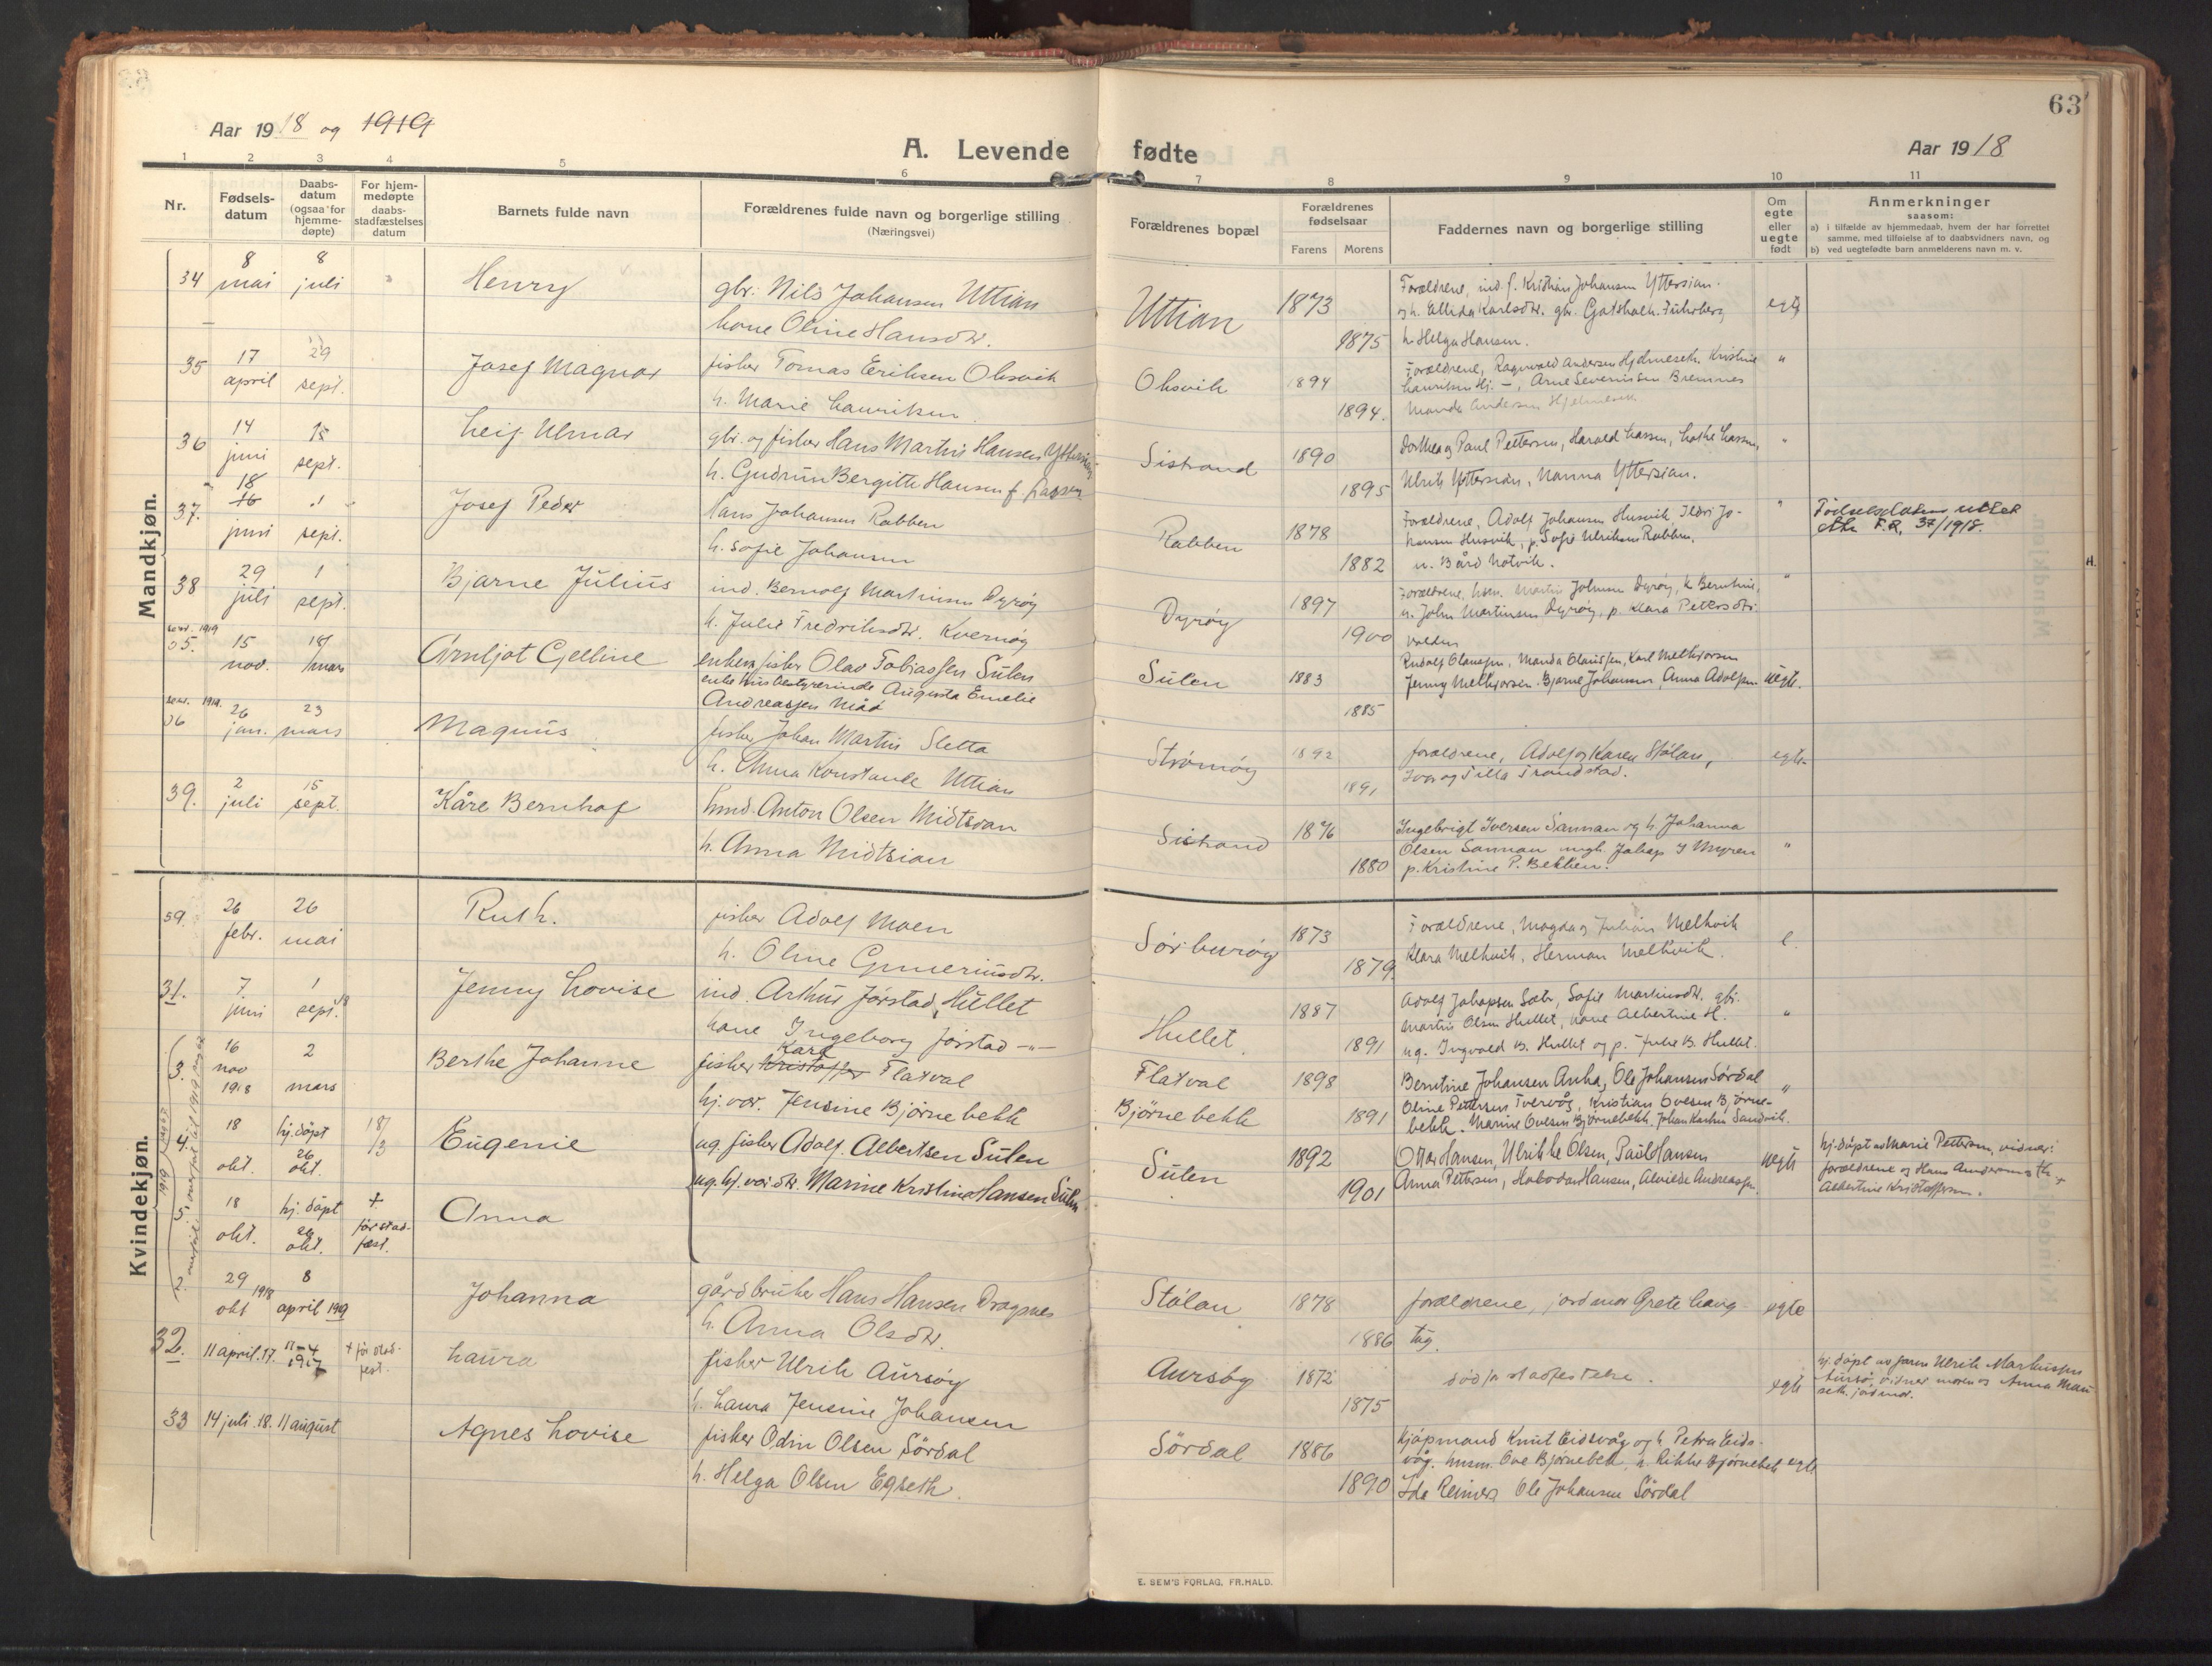 63
Aar 1918 og 1919
A. Levende fødte
Aar 1918
1 2 3 4 5 6 7 8 9 10 11
Nr.
Fødsels-
datum
Daabs-
datum
(ogsaa for
hjemme-
døpte)
For hjem-
medøpte
daabs-
stadfæstelses
datum
Barnets fulde navn
Forældrenes fulde navn og borgerlige stilling
(Næringsvei)
Forældrenes bopæl
Forældrenes
fødselsaar
Farens Morens
Faddernes navn og borgerlige stilling
Om
egte
eller
uegte
født
Anmerkninger
saasom:
a) i tilfælde av hjemmedaab, hvem der har forrettet
samme, med tilføielse af to daabsvidners navn, og
b) ved uegtefødte barn anmelderens navn m. v.
Mandkjøn.
34 8 mai 8 juli Henry
gbr. Nils Johansen Uttian
kone Oline Hansdtr.
Uttian 1873 1875
Forældrene, ind. f. Kristian Johansen Yttersian.
og h. Ellida Karlsdtr. gbr.
h. Helga Hansen.
egte
35 17 april 29 sept. Josef Magnar
fisker Tomas Eriksen Olsvik
h. Marie Lauriksen
Olsvik 1894 1894.
Forældrene, Ragnvald Andersen Hjelmeseth, Kristine
Lauriksen Hj. -, Arne Severinsen Bremnes
Manda Andersen Hjelmeseth
"
36 14 juni 15 sept. Leif Ulmar
gbr. og fisker Hans Martin Hansen Yttersian
h. Gudrun Bergitte Hansen f. Lassen
Sistrand 1890 1895
Dorthea og Paul Pettersen, Harald Lassen, Lassen,
Ulrik Yttersian, Nanna Yttersian.
"
37. 18 16 juni 1 sept. Josef Peder
Hans Johansen Rabben
h. Sofie Johansen
Rabben 1878 1882
Forældrene, Adolf Johansen Husvik, Ildri Jo-
hansen Husvik, p. Sofie Ulriksen Rabben.
u. Bård Notvik.
"
Fødselsdatum rettet
F.R. 37/1918.
38 29 juli 1 sept. Bjarne Julius
ind. Bernolf Martinsen Dyrøy
h. Julie Fredriksdtr. Kvernøy
Dyrøy 1897 1900
Forældrene, husm. Martin Johnsen Dyrøy, k. Berntine,
u. John Martinsen Dyrøy, p. Klara Pettersdtr.
Valden
"
1919
5. 15 nov. 18 mars Arnljot Gelline
enkem. fisker Olav Tobiassen Sulen
enke husbestyrerinde Augusta Emelie
Andreassen
Sulen 1883 1885
Rudolf Olaussen, Manda Olaussen, Karl Melkiorsen
Jenny Melkiorsen. Bjarne Johansen, Anna Adolfsen.
uegte.
1919.
6 26 jan. 23 mars Magnus
fisker Johan Martin Sletta
h. Anna Konstanse Uttian
Strømøy 1892 1891
forældrene, Adolf og Karen Stølan,
Ivar og Trandstad.
egte.
39. 2 juli 15 sept. Kåre Bernhof
husm. Anton Olsen Midtsian
h. Anna Midtsian
Sistrand 1876 1880
Ingebrigt Iversen Sannan og h. Johanna
Olsen Sannan ungk. Johan J Myren
p. Kristine P. Bekken.
"
Kvindekjøn.
39. 26 febr. 26 mai Ruth.
fisker Adolf Moen
h. Oline Gunneriusdtr.
Sørburøy 1873 1879
Forældrene, Magda og Julius Melkvik
Klara Melkvik, Herman Melkvik.
e.
31. 7 juni 1 sept. 18 Jenny Lovise
ind. Arthur Jørstad, Hullet
kone Ingeborg Jørstad -"-
Hullet 1887 1891
Adolf Johansen Sætr, Sofie Martinsdtr. gbr.
Martin Olsen Hullet, kone Albertine H.
ug. Ingvald B. Hullet og p. Julie B. Hullet.
"
3. 16 nov 1918 2 mars Berthe Johanne
Karl
fisker Kristoffer Flatval
hj. vær. Jensine Bjørnebekk
Flatval
Bjørnebekk
1898 1891
Berntine Johansen Anka, Ole Johansen Sørdal
Oline Pettersen Tvervåg, Kristian Ovesen Bjørne-
bekk. Marine Ovesen Bjørnebekk. Johan Sandvik.
"
4. 18 okt. hj. døpt 26 okt. 18/3 Eugenie
ug. fisker Adolf Albertsen Sulen
ug. hj. vær. dtr. Marine Kristine Hansen Sulen
Sulen 1892 1901
Otto Hansen, Ulrikke Olsen, Paul Hansen
Anna Pettersen, Hansen, Alvilde Andreassen
uegte
hj. døpt av Marie Pettersen, vidner:
forældrene og Hans Andersen
Albertine Kristoffersen.
5. 18 okt. hj. døpt 26 okt. + før stad-
fæst.
Anna
2. 29 okt 1918 8 april 1919 Johanna
gårdbruker Hans Hansen Dragsnes
h. Anna Olsdtr.
Stølan 1878 1886
forældrene, jordmor Grete Laug-
tug.
egte
32. 11 april. 17. 11-4 1917 + før stad-
fest.
Laura
fisker Ulrik Aursøy
h. Laura Jensine Johansen
Aursøy 1872 1875
død før stadfestelse.
egte
hj. døpt av faren Ulrik Markussen
Aursø, vidner moren og Anna Mau
seth, jordmor.
33 14 juli. 18. 11 august Agnes Lovise
fisker Odin Olsen Sørdal
h. Helga Olsen Egseth.
Sørdal 1886 1890
kjøpmand Knut Eidsvåg og h. Petra Eids-
våg. husm. Ove Bjørnebekk, h. Rikke Bjørnebekk
Ida Reiners Ole Johansen Sørdal
egte
E. SEM'S FORLAG, FR.HALD.